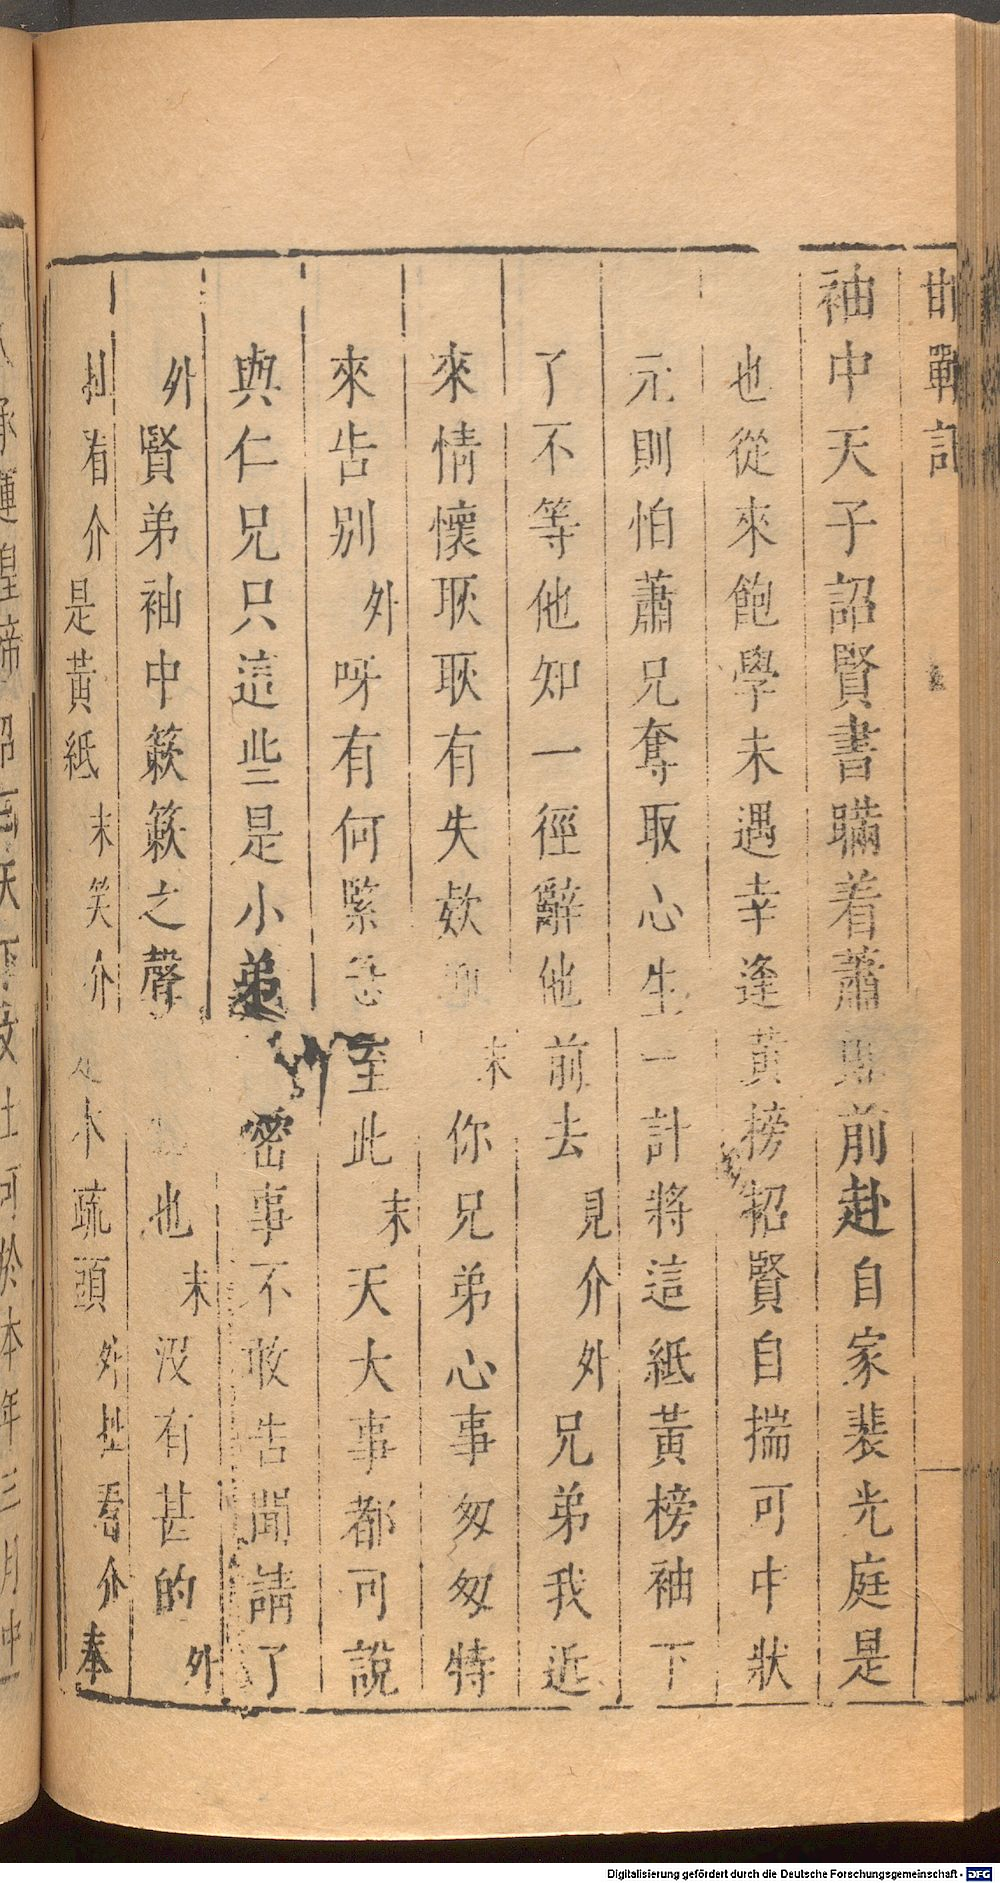 邯鄲記
袖中天子詔賢書瞞着蕭前赴自家裴光庭是
也從來飽學未遇幸逢黃榜招賢自揣可中狀
元則怕蕭兄奪取心生一計將這紙黃榜袖下
了不等他知一徑辭他前去見介外兄弟我近
來情懷耿耿有失欵末你兄弟心事匆匆特
來告别外呀有何緊急至此末天大事都可說
與仁兄只這些是小弟密事不敢告聞請了
外賢弟袖中簌簌之聲也末没有甚的外
扯看介是黃紙末笑介是本疏頭外扯看介奉
Digitalisierung gefördert durch die Deutsche Forschungsgemeinschaft - DFG